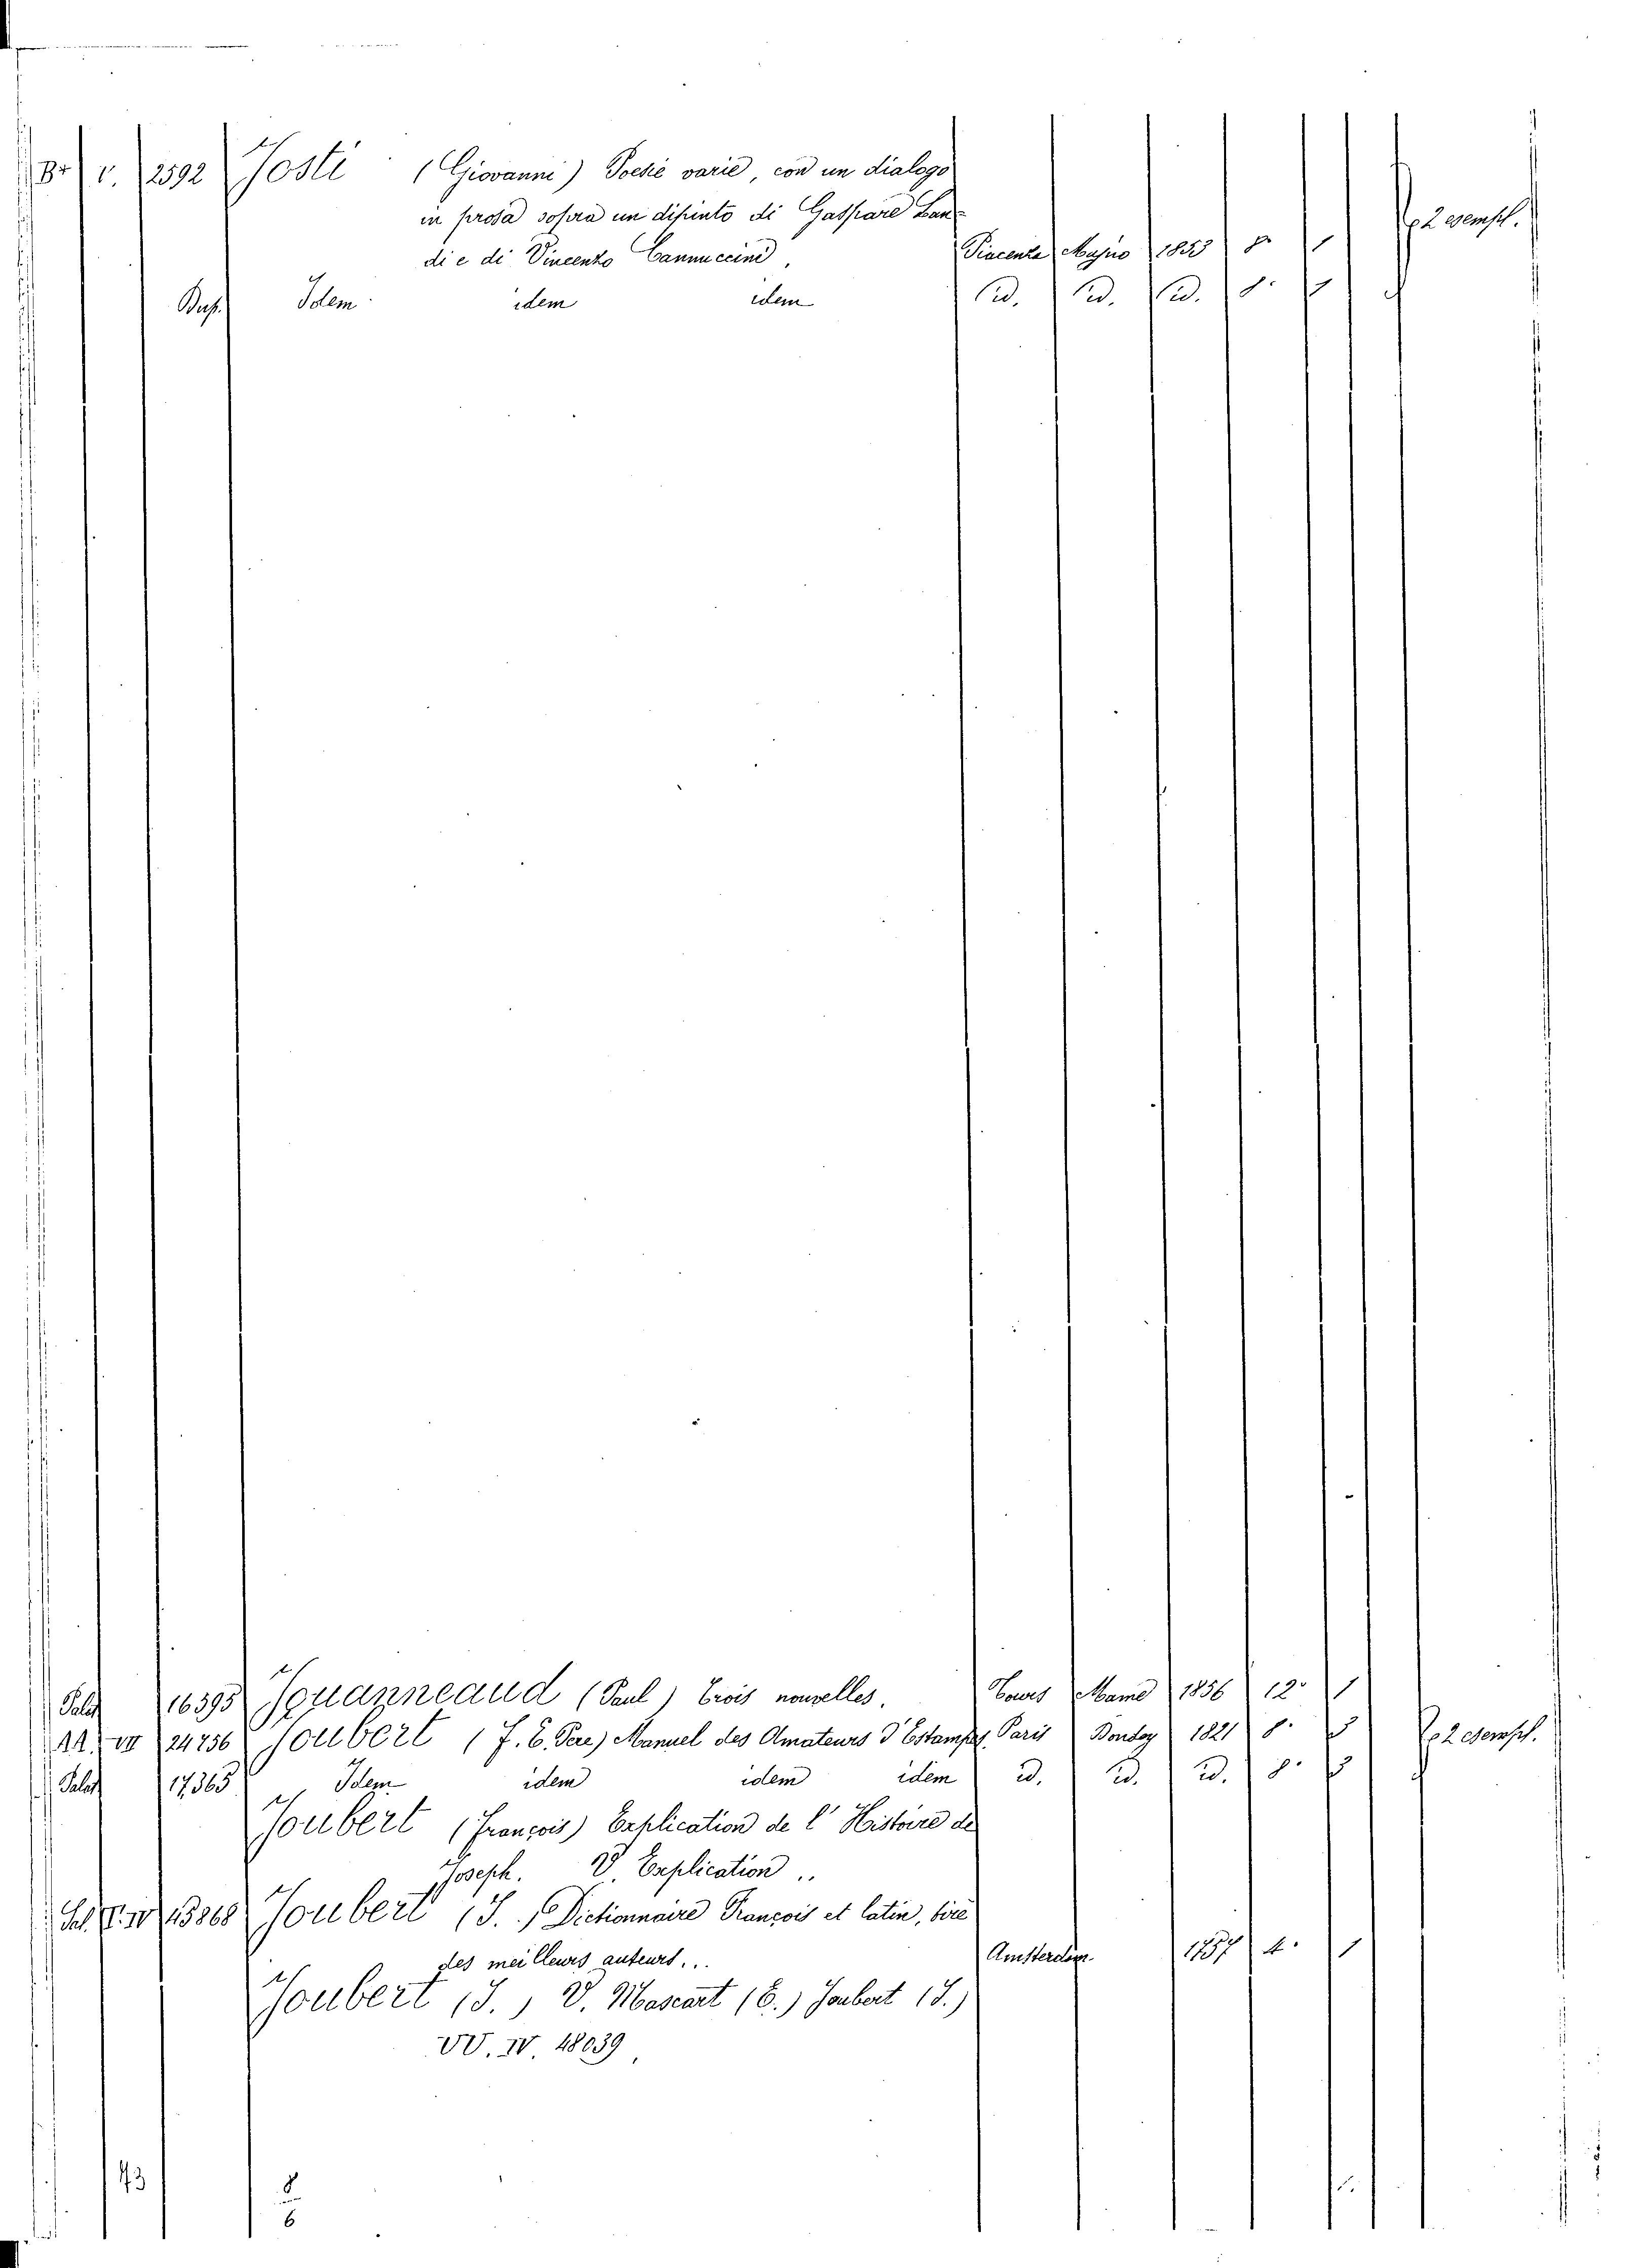 Br. V. 2592 Josti (Giovanni) Poesie varie, con un dialogo
in prosa sopra un dipinto di Gaspare Lan-
di e di Vincenzo Cammuccini, Piacenza Majno 1853 8º 1 2 esempl.
Idem idem idem id. id. id. 8º 1
Palat 16395 Jouanneaud (Paul) Trois nouvelles. Tours Mame 1856 12º 1
AA. VII 24756 Joubert (F. E. Pere) Manuel des Amateurs d'Estampes. Paris 1821 8º 3 2 esempl.
Palat 17365 Idem idem idem idem id. id. id. 8º 3
Joubert (François) Explication de l'Histoire de
Joseph. V. Explication ..
IV 45868 Joubert (J.) Dictionnaire François et latin, tiré
des meilleurs auteurs... Amsterdam 1757 4º 1
Joubert (J.) V. Mascart (E.) Joubert (J.)
VV. IV. 48039
43
8
6